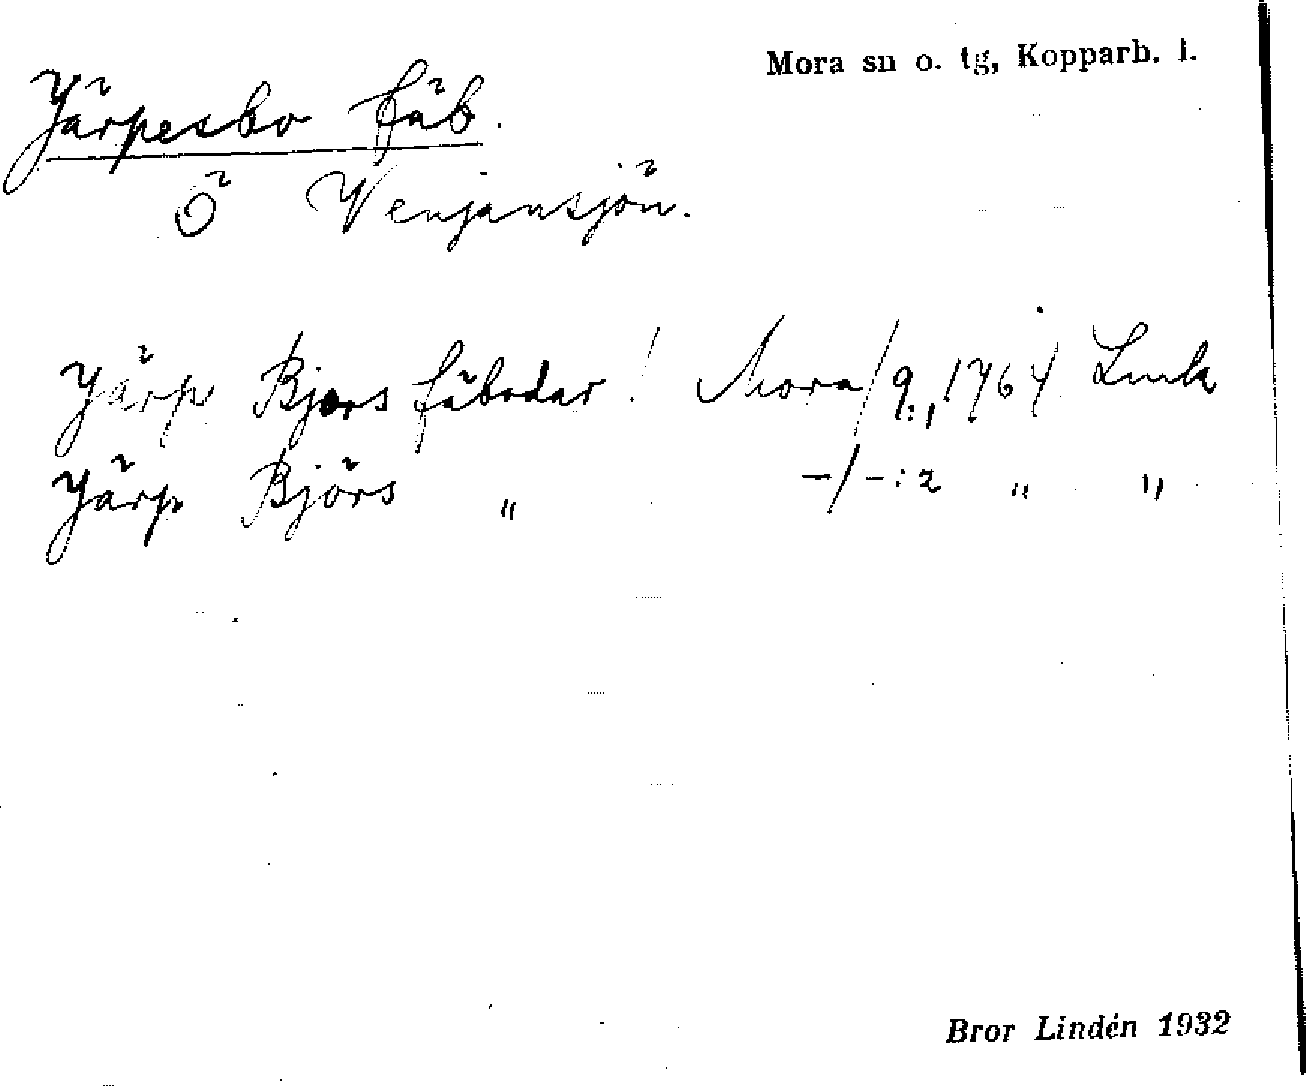 Mora sn o. tg, Kopparb. l.
Järpesbo fäb.
Ö Venjansjön.
Järp Bjers fäbodar! Mora/9:1 1764 Lmk
Järp Björs " -/-:2 " "
Bror Lindén 1932